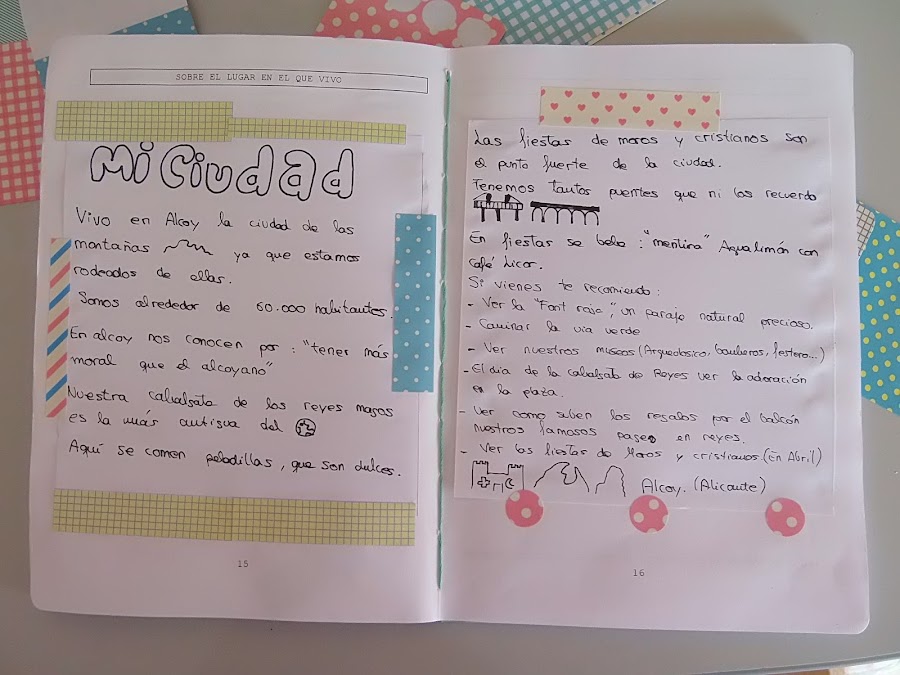 SOBRE EL LUGAR EN EL QUE VIVO
Mi Ciudad
Vivo en Alcoy la ciudad de las
montañas ya que estamos
rodeados de ellas.
Somos alrededor de 60.000 habitantes.
En alcoy nos conocen por: "tener más
moral que el alcoyano"
Nuestra cabalgata de los reyes magos
es la más antigua del
Aquí se comen peladillas, que son dulces.
15
Las fiestas de moros y cristianos son
el punto fuerte de la ciudad.
Tenemos tantos puentes que ni los recuerdo
En fiestas se bebe: "mentira" Agualimón con
café licor.
Si vienes te recomiendo:
- Ver la "Font roja", un paraje natural precioso.
- Caminar la via verde
- Ver nuestros museos (Arqueologico, bomberos, festero...)
- El dia de la cabalgata de Reyes ver la adoración
en la plaza.
- Ver como suben los regalos por el balcón
nuestros famosos pages en reyes.
- Ver las fiestas de Moros y cristianos. (En Abril)
Alcoy. (Alicante)
16